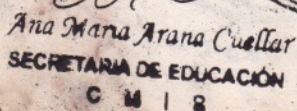 Ana Maria Arana Cuellar
SECRETARIA DE EDUCACIÓN
C M I 8